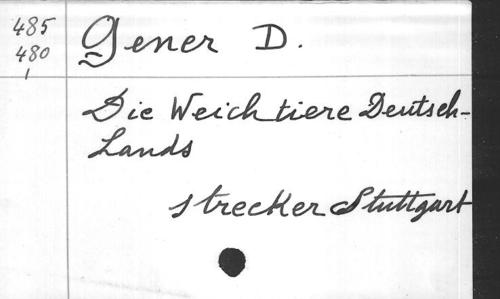 485
480
Gener D.
Die Weichtiere Deutsch-
Lands
strecker Stuttgart